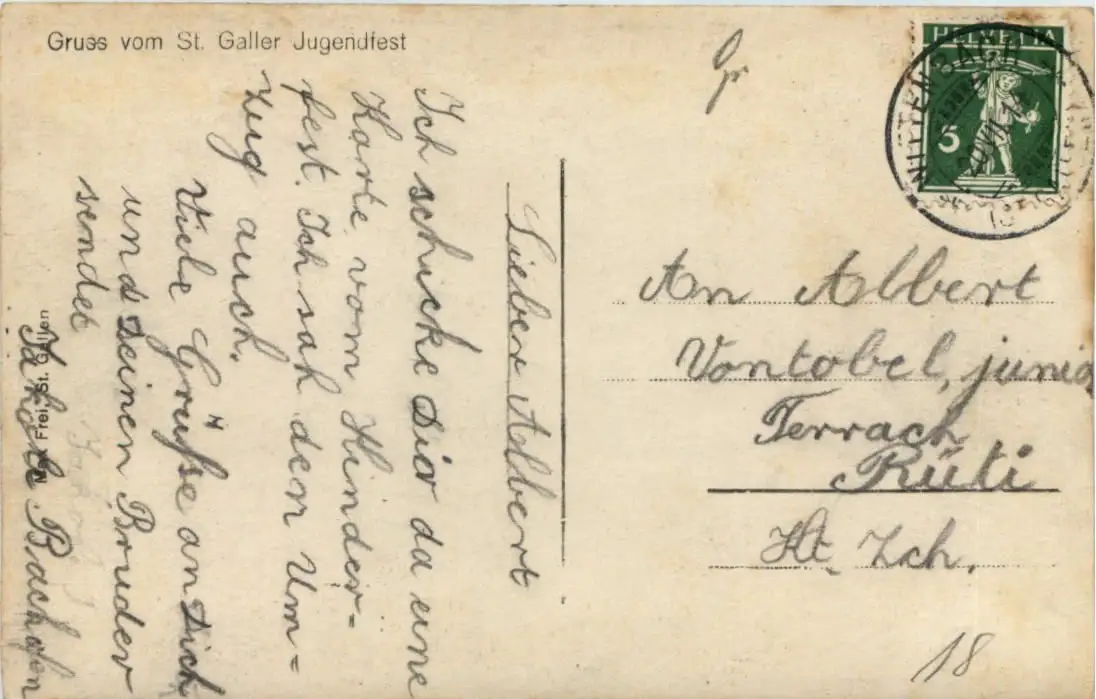 Gruss vom St. Galler Jugendfest
Lieber Albert
Ich schicke Dir da eine
Karte vom Kinder-
fest. Ich sah den Um-
zug auch.
Viele Grüße an Dich
und Deinen Bruder
sendet
Jakob Bachofen
Max Frei, St. Gallen
HELVETIA
5
WITTENBACH
An Albert
Vontobel, junior
Ferrach
Rüti
Kt. Zch.
18